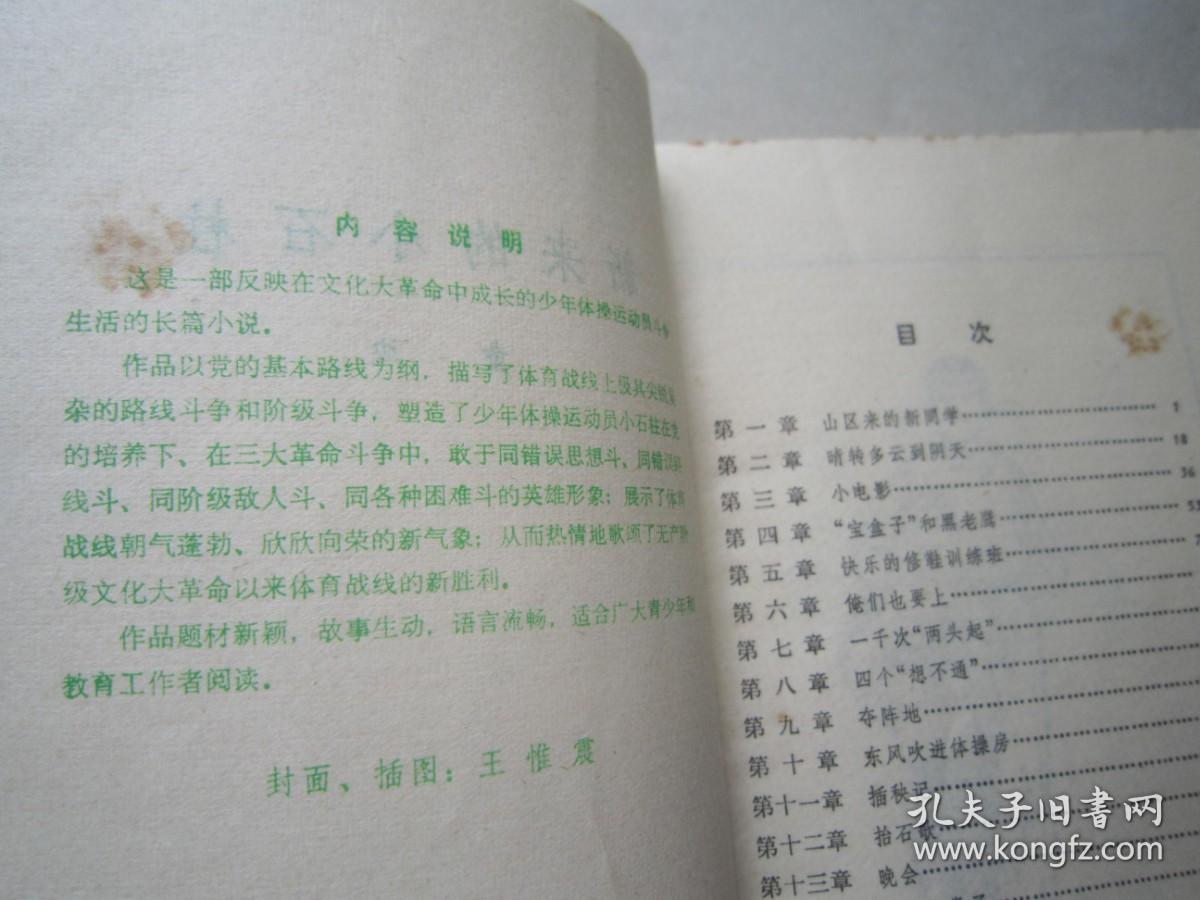 内容说明
这是一部反映在文化大革命中成长的少年体操运动员斗争
生活的长篇小说。
作品以党的基本路线为纲，描写了体育战线上极其尖锐
杂的路线斗争和阶级斗争，塑造了少年体操运动员小石柱在党
的培养下、在三大革命斗争中，敢于同错误思想斗、同错误
线斗、同阶级敌人斗、同各种困难斗的英雄形象；展示了体育
战线朝气蓬勃、欣欣向荣的新气象；从而热情地歌颂了无产阶
级文化大革命以来体育战线的新胜利。
作品题材新颖，故事生动，语言流畅，适合广大青少年和
教育工作者阅读。
封面、插图：王惟震
目次
第一章 山区来的新同学…………………1
第二章 晴转多云到阴天…………………18
第三章 小电影…………………36
第四章 “宝盒子”和黑老鹰…………………53
第五章 快乐的修鞋训练班…………………
第六章 俺们也要上…………………
第七章 一千次“两头起”…………………
第八章 四个“想不通”…………………
第九章 夺阵地…………………
第十章 东风吹进体操房…………………
第十一章 插秧记…………………
第十二章 抬石歌…………………
第十三章 晚会…………………
孔夫子旧书网
www.kongfz.com